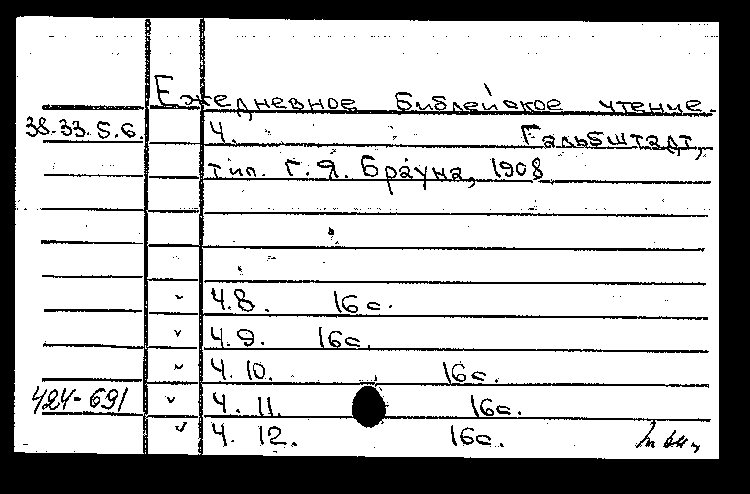 Ежедневное библейское чтение.
38.33.5.6. Ч. Гальбштадт,
тип. Г. Я. Брауна, 1908
ᵛ Ч.8. 16с.
ᵛ Ч.9. 16с.
ᵛ Ч. 10. 16с.
424-691 ᵛ Ч. 11. 16с.
ᵛ Ч. 12. 16с.